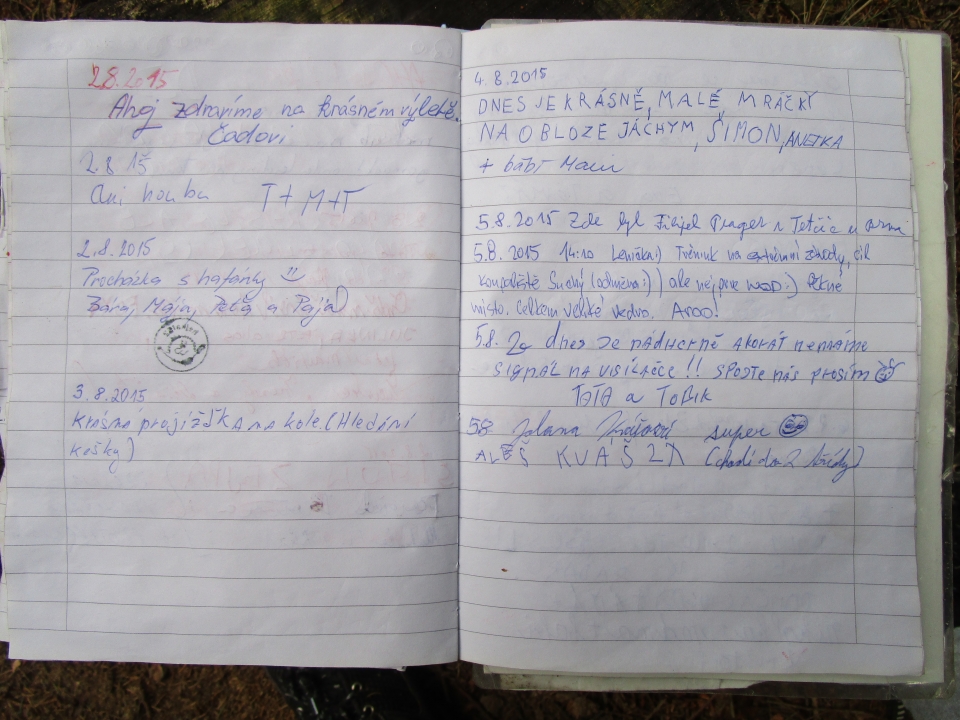 2.8.2015
Ahoj zdravíme na krásném výletě.
Čadovi
2.8 15
Ani houbu T+M+T
2.8.2015
Procházka s hafánky
Bára, Mája, Péťa a Pája
3.8.2015
Krásná projížďka na kole. (Hledání
kešky)
4.8.2015
DNES JE KRÁSNĚ, MALÉ MRÁČKY
NA OBLOZE JÁCHYM, ŠIMON, ANETKA
+ babi
5.8.2015 Zde byl Filip Prager z Tetčic u Brna
5.8. 2015 14:10 Lenička:) Trénink na závody, cíl
koupaliště Suchý (odměna:)) ale nejprve :) Pěkné
místo. Celkem veliké vedro. Aroo!
5.8. dnes je nádherně akorát nemáme
SIGNÁL NA VYSÍLAČCE!! SPOJTE NÁS PROSÍM
TÁTA a TOBIK
5.8. Jolana super
ALEŠ (chodí do 2 třídy)